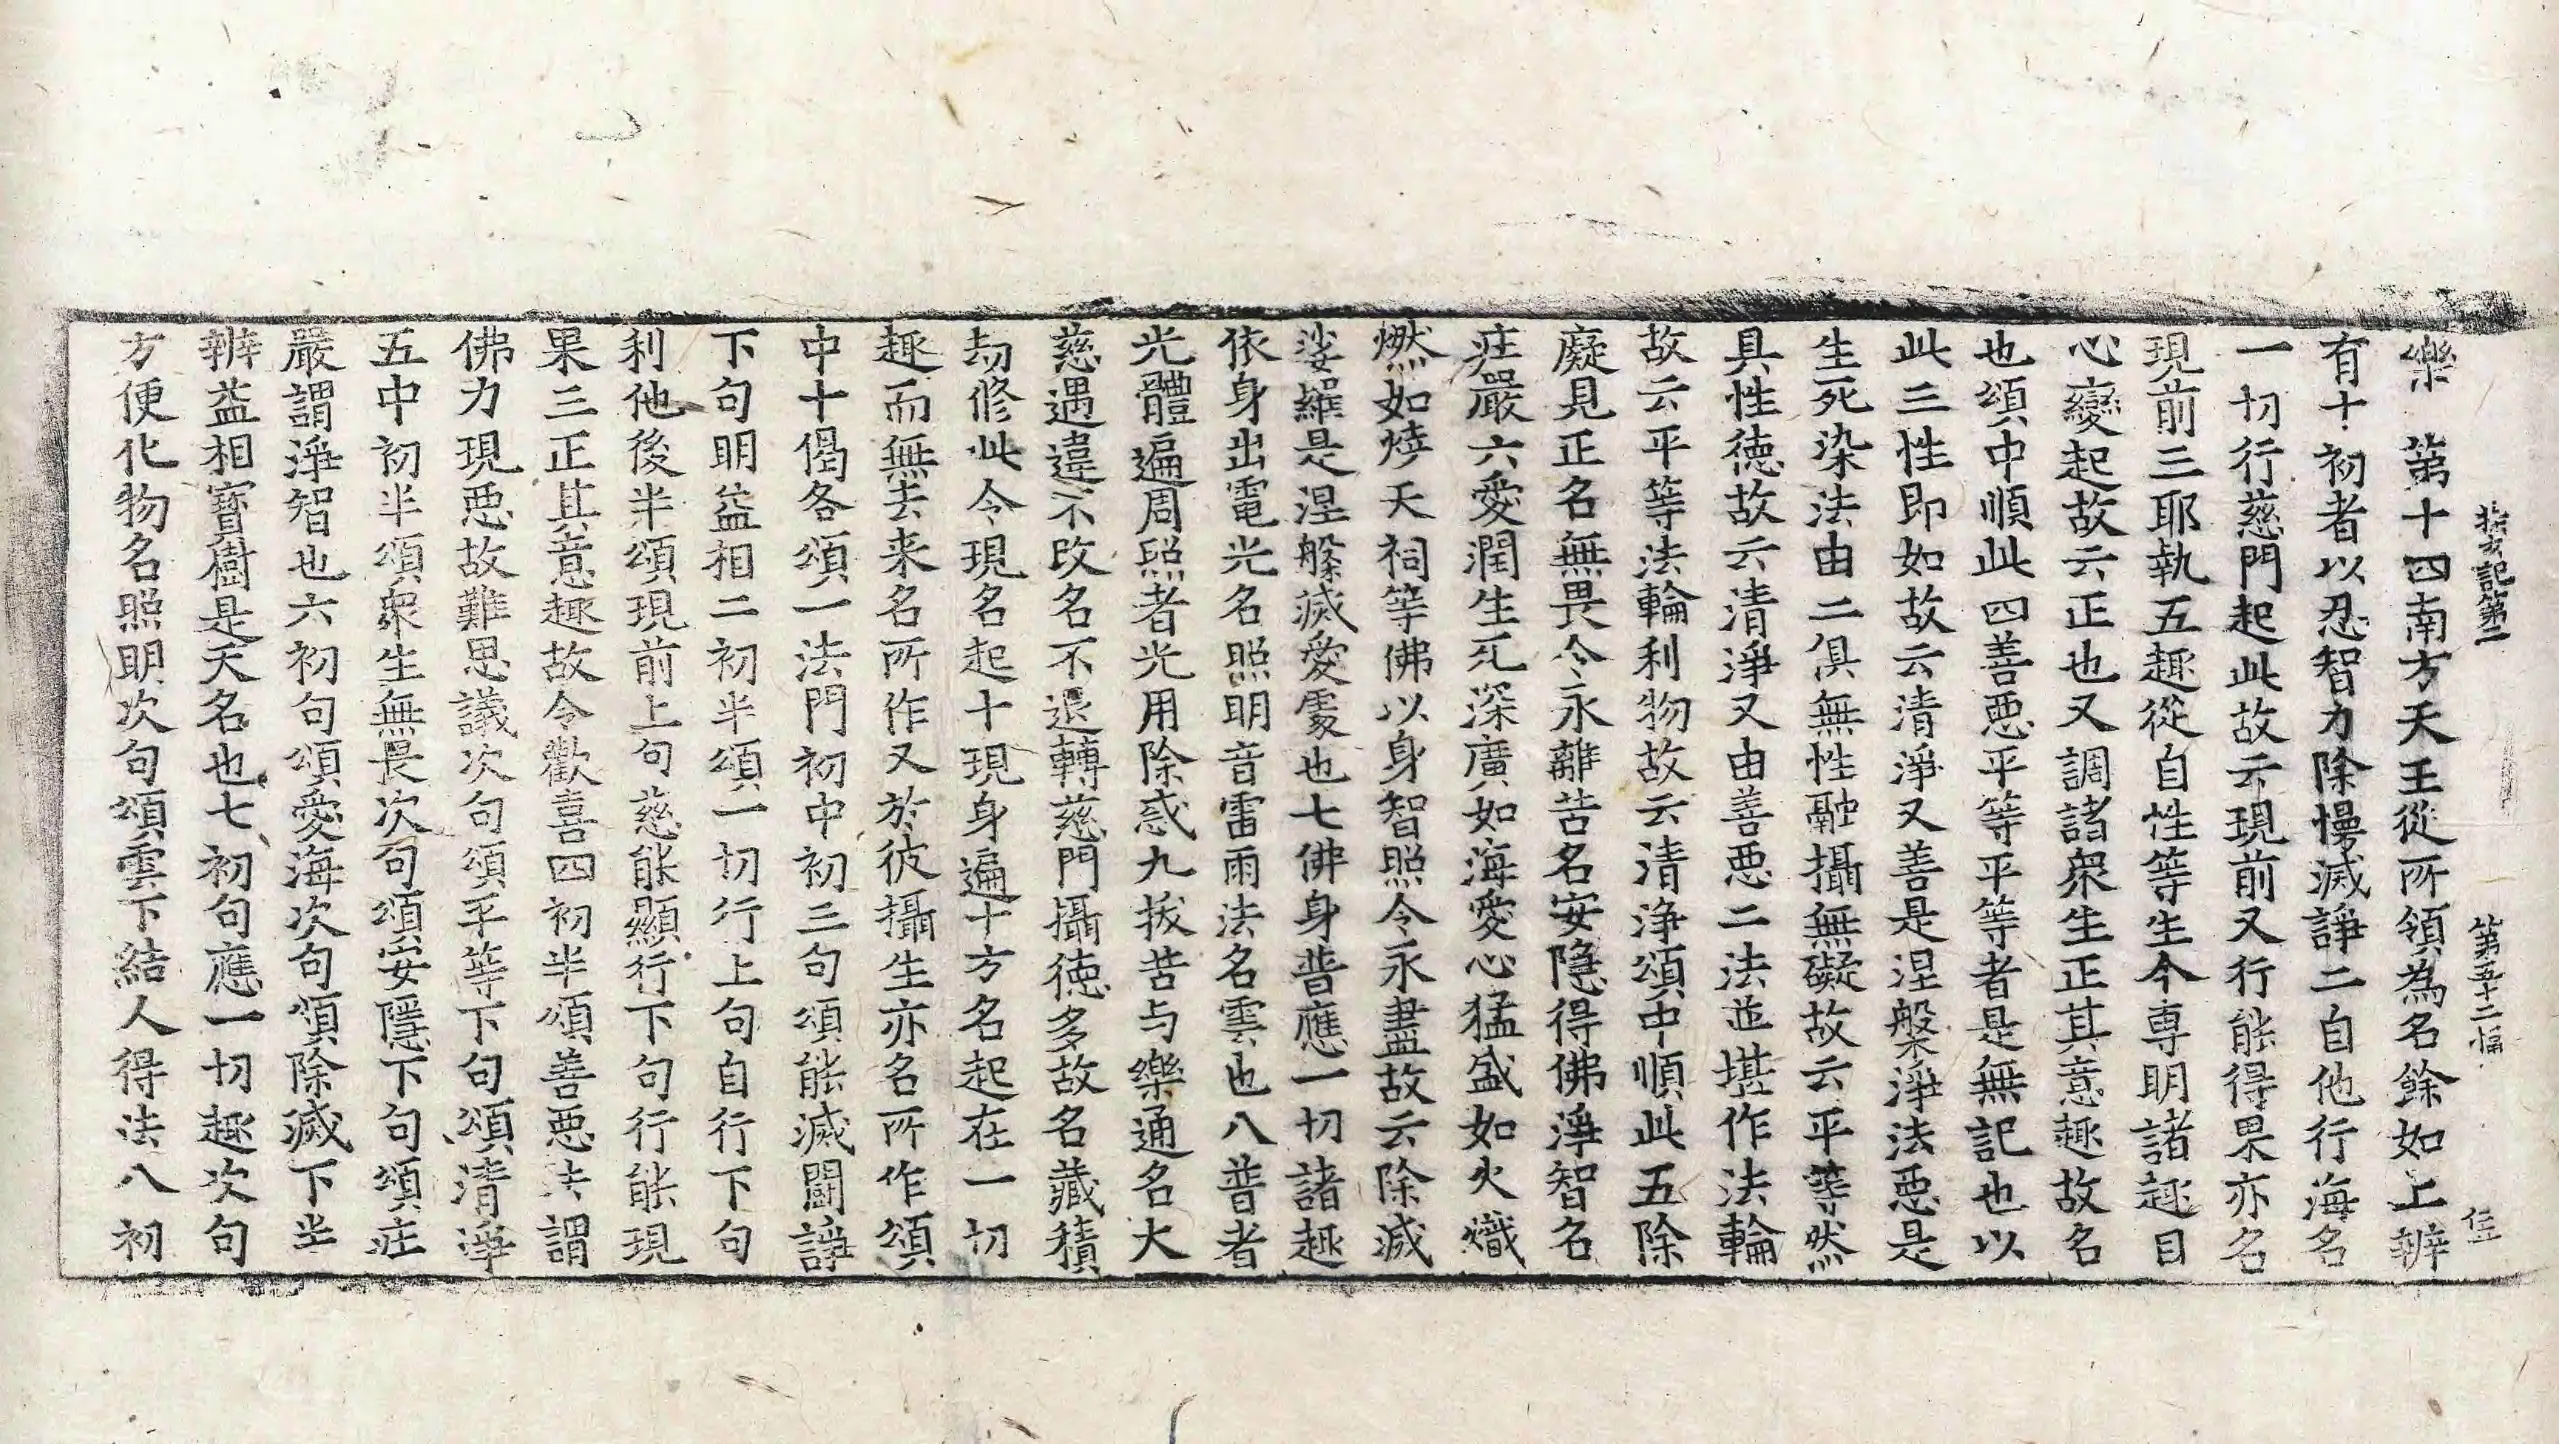 搜玄記第二 第五十二幅 住
樂 第十四南方天王從所領為名餘如上辨
有十初者以忍智力除慢滅諍二自他行海名
一切行慈門起此故云現前又行能得果亦名
現前三耶執五趣從自性等生今專明諸趣目
心變起故云正也又調諸衆生正其意趣故名
也頌中順此四善惡平等平等者是無記也以
此三性即如故云清淨又善是涅槃淨法惡是
生死染法由二俱無性融攝無礙故云平等然
具性徳故云清淨又由善惡二法並堪作法輪
故云平等法輪利物故云清淨頌中順此五除
癡見正名無畏令永離苦名安隱得佛淨智名
莊嚴六愛潤生死深廣如海愛心猛盛如火熾
燃如燒天祠等佛以身智照令永盡故云除滅
娑羅是涅槃滅愛處也七佛身普應一切諸趣
依身出電光名照明音雷雨法名雲也八普者
光體遍周照者光用除惑九拔苦与樂通名大
慈遇違不改名不退轉慈門攝徳多故名藏積
劫修此今現名起十現身遍十方名起在一切
趣而無去来名所作又於彼攝生亦名所作頌
中十偈各頌一法門初中初三句頌能滅鬪諍
下句明益相二初半頌一切行上句自行下句
利他後半頌現前上句慈能顯行下句行能現
果三正其意趣故令歡喜四初半頌善惡法謂
佛力現惡故難思議次句頌平等下句頌清淨
五中初半頌衆生無畏次句頌安隱下句頌莊
嚴謂淨智也六初句頌愛海次句頌除滅下半
辨益相寶樹是天名也七初句應一切趣次句
方便化物名照明次句頌雲下結人得法八初